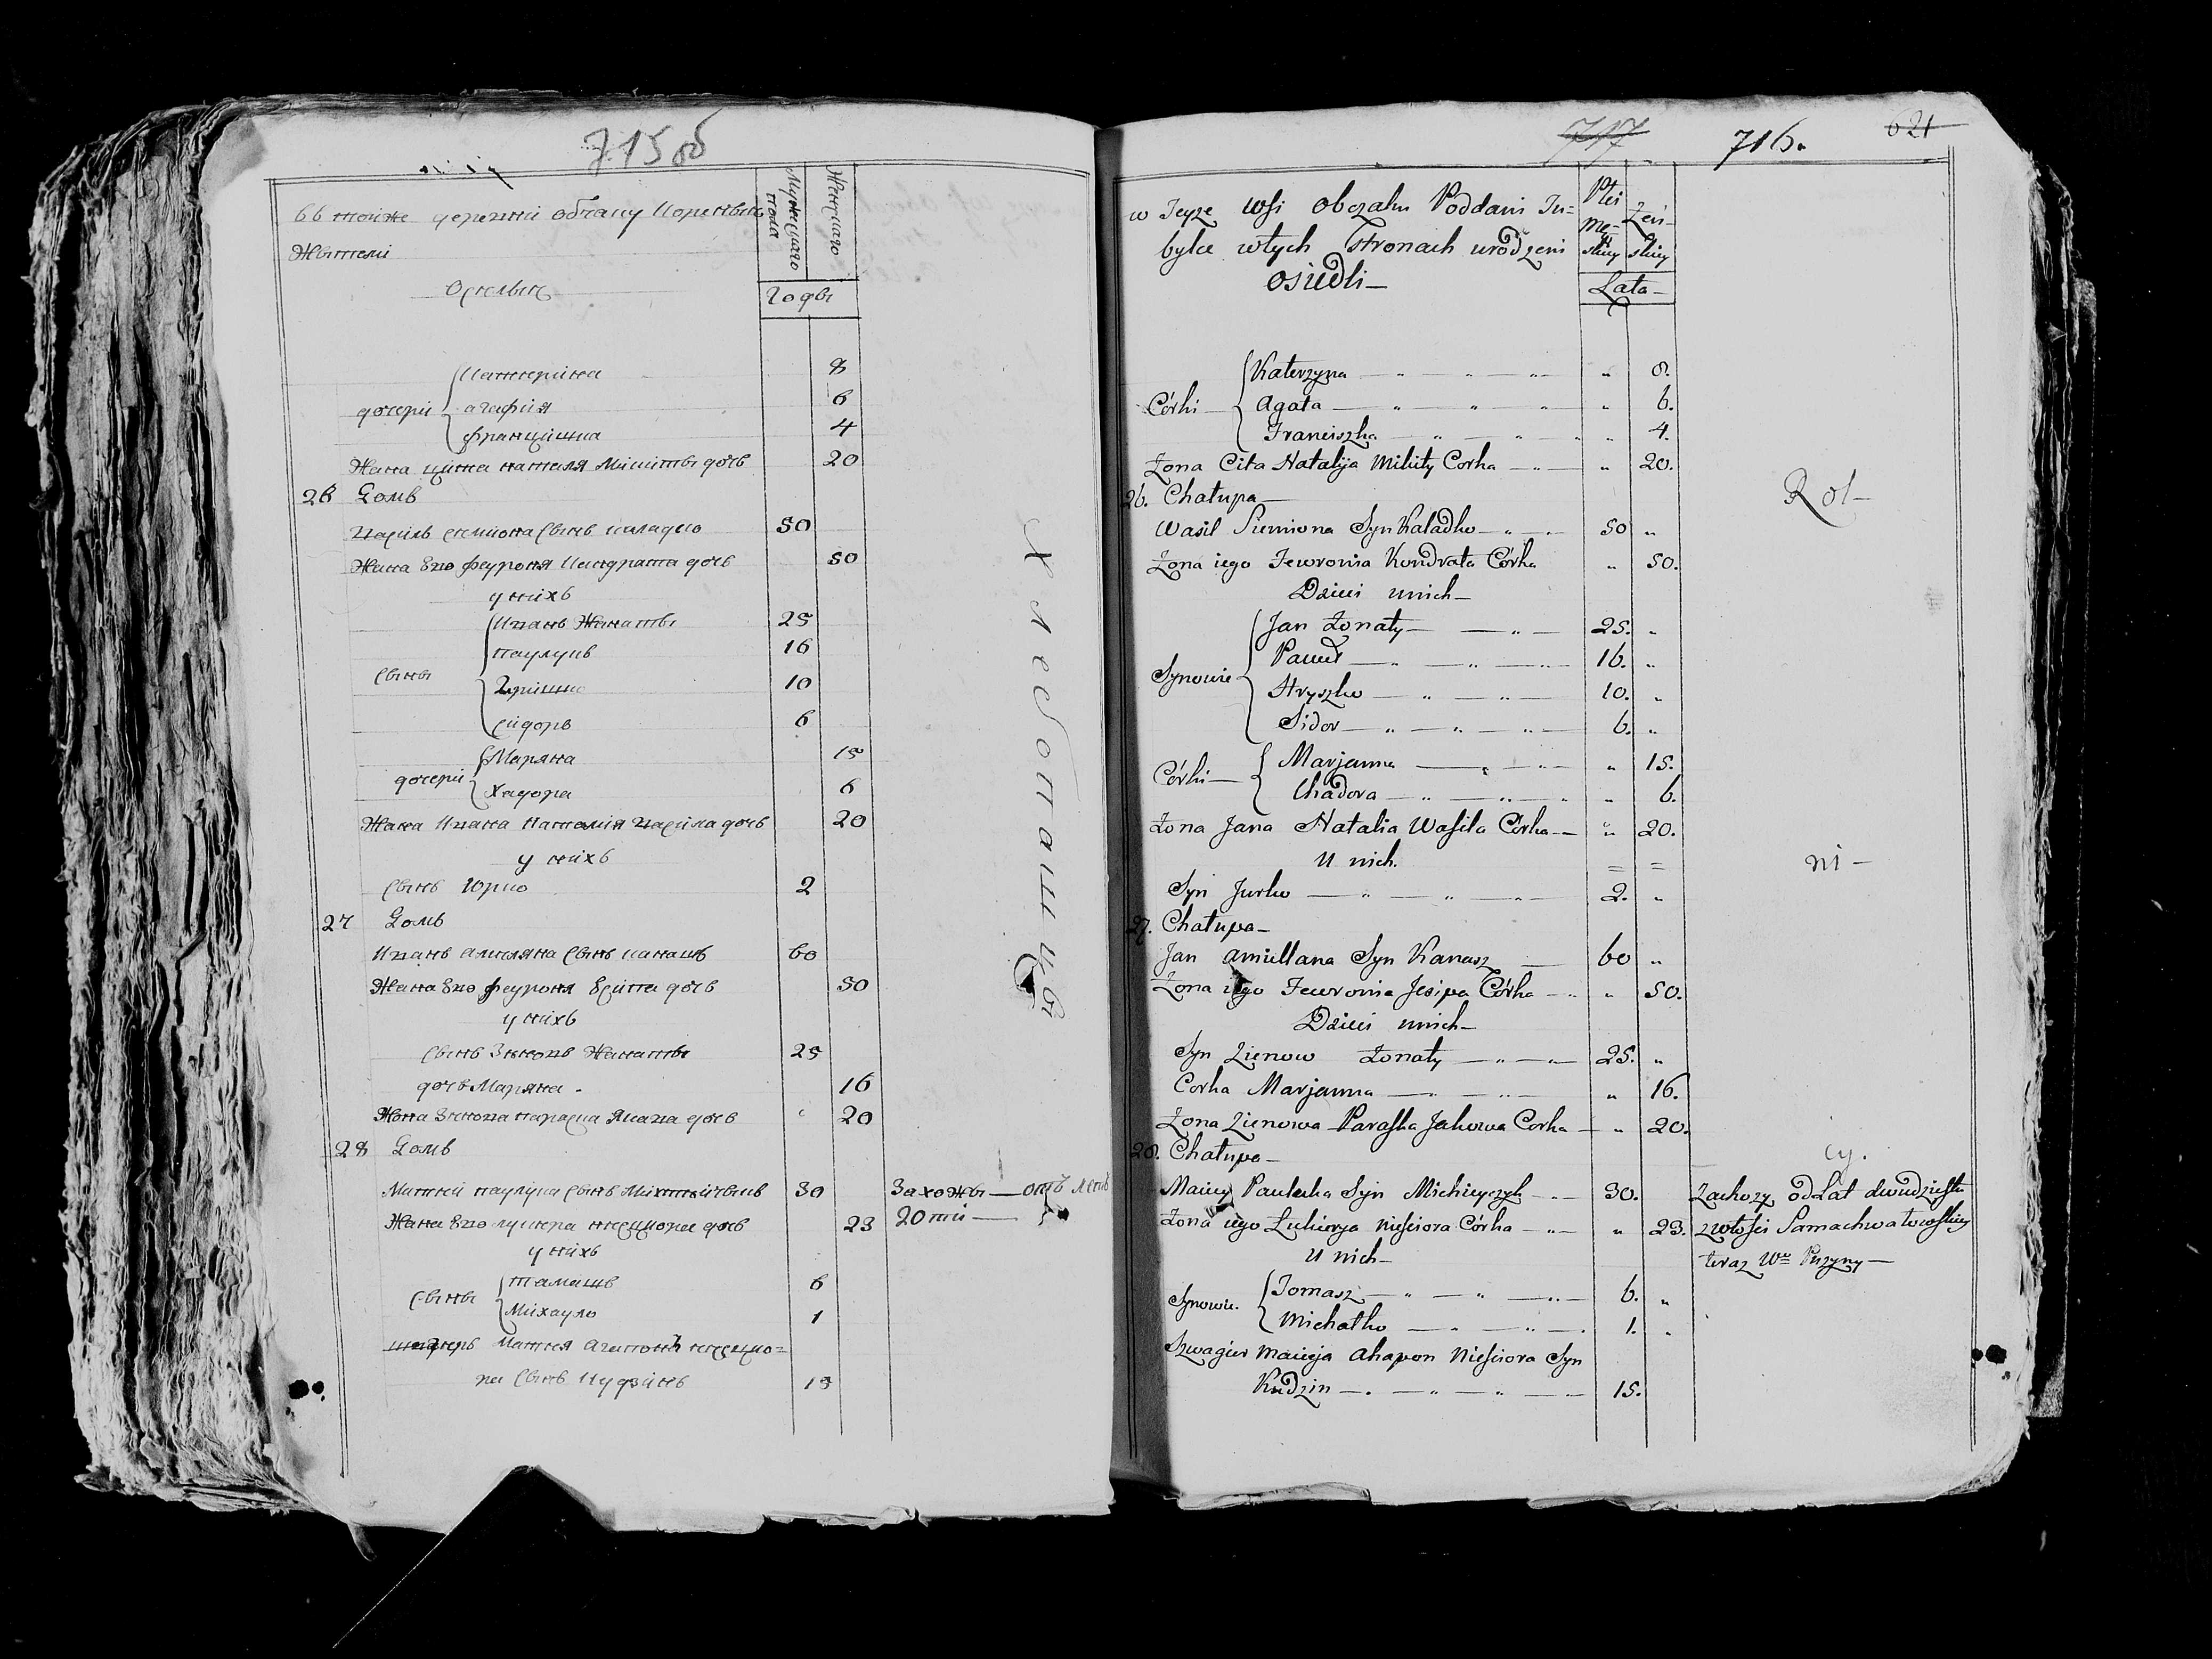 715 об
въ тойже деревни обчаку коренные
Жители
Оселые
Мужескаго пола
Женскаго
Годы
дочери
Катерина 8
агафия 6
францишка 4
Жена цита наталя Микиты дочь 20
26 Домъ
Василь семиона сынъ каладко 50
Жена Его феуроня Кандрата дочь 50
у нихъ
сыны
Иванъ Жанаты 25
паулукъ 16
Гришко 10
сидоръ 6
дочери
Маряна 15
Хадора 6
Жана Ивана Наталия васила дочь 20
у нихъ
сынъ Юрко 2
27 Домъ
Иванъ амеляна сынъ канашъ 60
Жена Его феуроня Есипа дочь 50
у нихъ
сынъ Зеновъ Жанаты 25
дочь Маряна 16
Жона Зенова параска Якава дочь 20
28 Домъ
Матей паулука сынъ Михнейчыкъ 30
Захожы — отъ летъ
Жена Его лукера несцюра дочь 23
20ти —
у нихъ
сыны
тамашъ 6
Михауло 1
швагеръ Матея агапонъ несцио=
ра сынъ Кудзинъ 15
Хлебопашцы
717
716.
621
w Teyze wsi Obczaku Poddani Tu=
bylce w tych Stronach urodzeni
osiedli —
Płci
Mę-
skiey
Żeń-
skiey
Lata —
Córki
Katerzyna — " — " — " 8.
Agata — " — " — " 6.
Franciszka — " — " — " 4.
Żona Cita Natalija Mikity Corka — " 20.
26. Chałupa —
Wasil Siemiona Syn Kaladko — " — 50 "
Żona iego Fewronia Kondrata Córka " 50.
Dzieci u nich —
Synowie
Jan Żonaty — " — 25. "
Paweł — " — " — 16. "
Hryszko — " — " — 10. "
Sidor — " — " — 6. "
Córki
Marjanna — " — " 15.
Chadora — " — " — " 6.
Żona Jana Natalia Wasila Corka — " 20.
U nich.
Syn Jurko — " — " — 2. "
27. Chałupa —
Jan amiellana Syn Kanasz — 60 "
Żona iego Fewronia Jesipa Córka — " 50.
Dzieci u nich —
Syn Zienow Żonaty — " — 25. "
Corka Marjanna — " — " 16.
Żona Zienowa Paraska Jakowa Corka — " 20.
28. Chałupa —
Maciey Pauluka Syn Michieyczyk — 30.
Żona iego Lukierya Nieściora Córka — " 23.
U nich —
Synowie.
Tomasz — " — " — 6. "
Michałko — " — " — 1. "
Szwagier Macieja Ahapon Nieściora Syn
Kudzin — " — " — 15.
Rol —
ni —
cy.
Zachozy od Lat dwudziestu
z włości Samachwałowskiey
teraz Wº Puzyny —